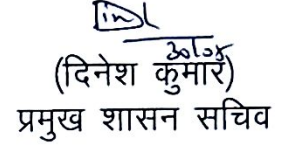 30/04
(दिनेश कुमार)
प्रमुख शासन सचिव